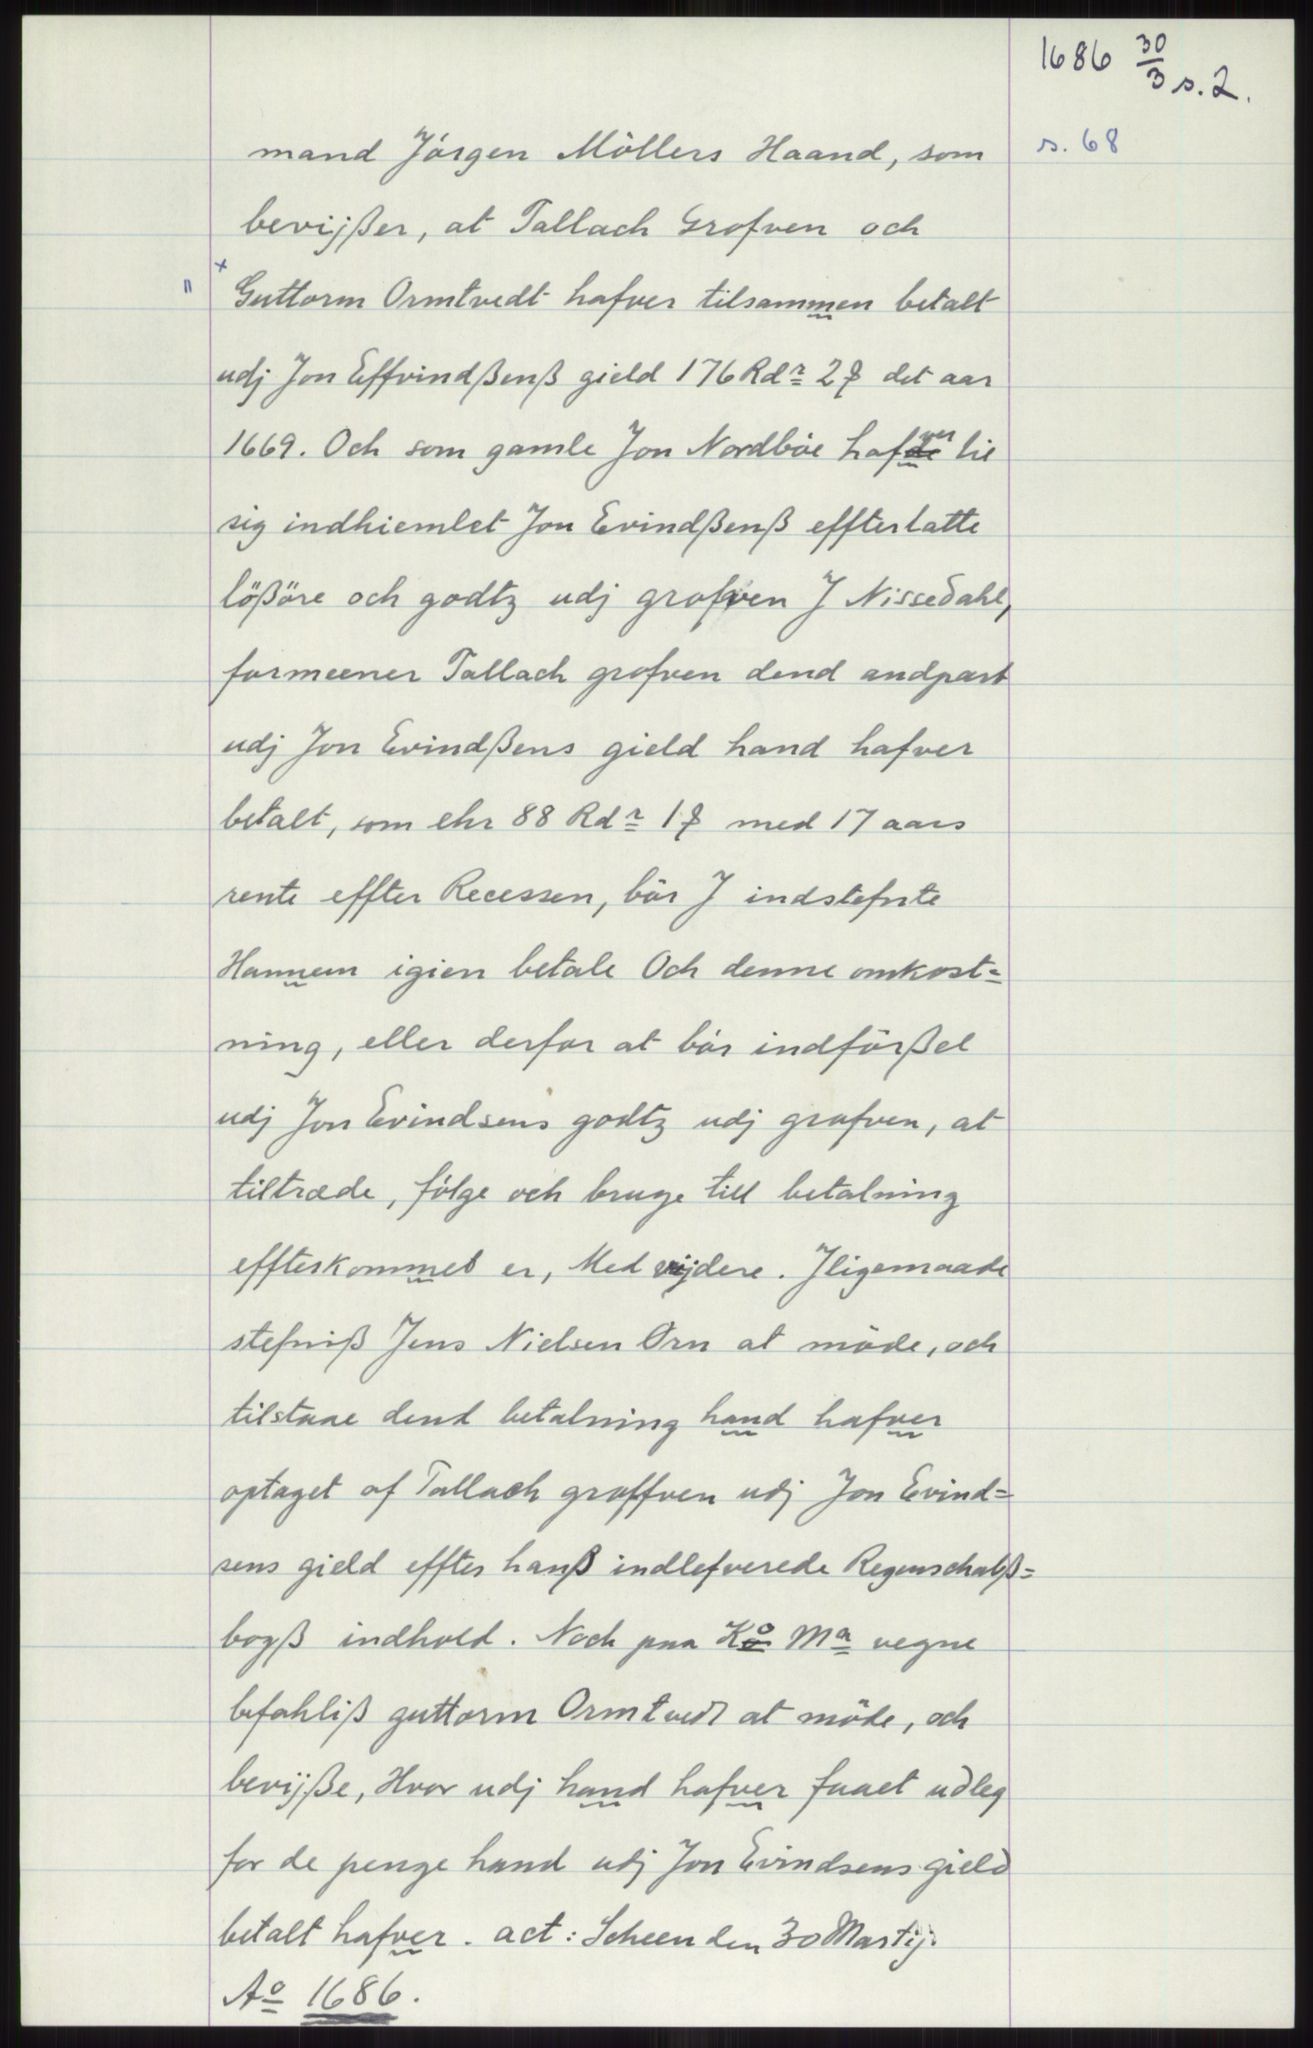 1686 30/3 s. 2.
s. 68
mand Jörgen Möllers Haand, som
bevijßer, at Tallach Grofven och
" + Guttorm Ormtvedt hafver tilsammen betalt
udj Jon Effvindßenß gield 176 Rdr 2 ꝭ det aar
1669. Och som gamle Jon Nordböe hafver til
sig indhiemlet Jon Evindßenß effterlatte
lößöre och godtz udj grofven J Nissedahl,
formeener Tallach grofven dend andpart
udj Jon Evindßens gield hand hafver
betalt, som ehr 88 Rdr 1 ꝭ med 17 aars
rente effter Recessen, bör J indstefnte
Hannem igien betale Och denne omkost=
ning, eller derfor at bör indförßel
udj Jon Evindsens godtz udj grofven, at
tiltræde, fölge och bruge till betalning
effterkommet er, Med vijdere. Jligemaade
stefniß Jens Nielsen Örn at möde, och
tilstaae dend betalning hand hafver
optaget af Tallach groffven udj Jon Evind=
sens gield effter hanß indlefverede Regenschabß=
bogß indhold. Noch paa Ko Ma vegne
befahliß guttorm Ormtvedt at möde, och
bevijße, Hvor udj hand hafver faaet udleg
for de penge hand udj Jon Evindsens gield
betalt hafver. act: Scheen den 30 Martij.
Ao 1686.